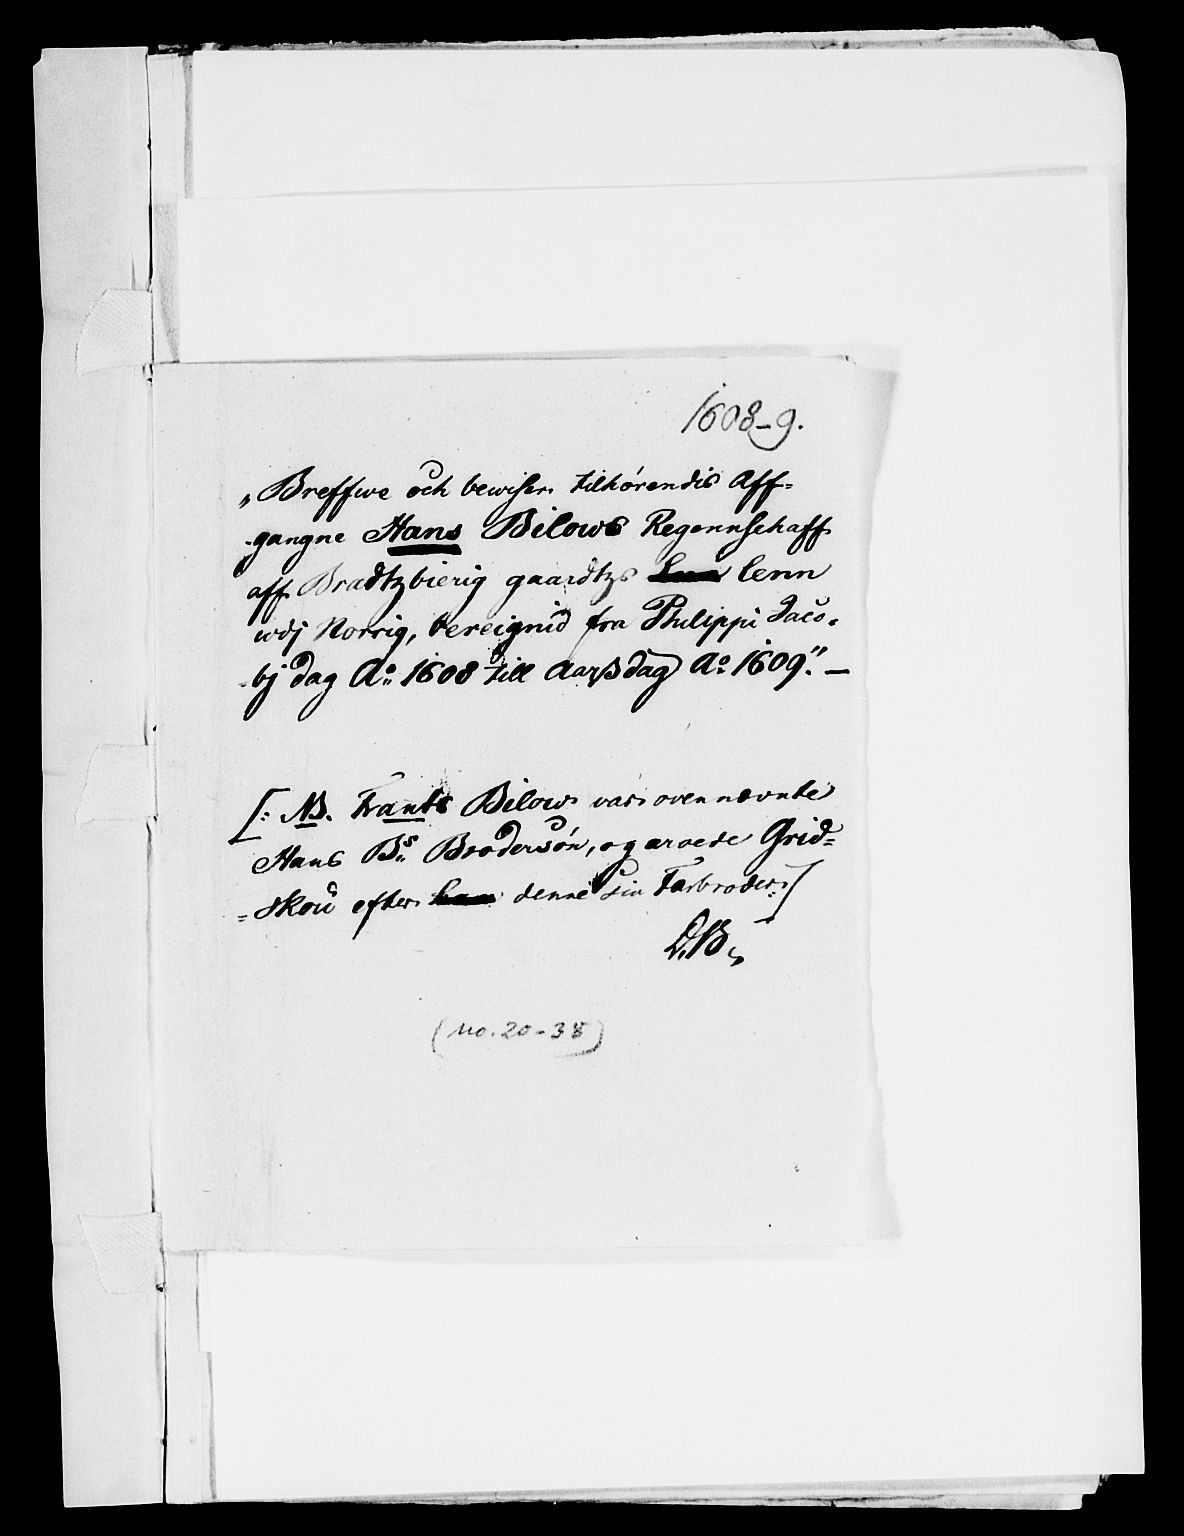 1608-9.
„Breffwe och bewiser tilhörendis Aff=
gangne Hans Bilows Regennschaff
aff Bradtzbierig gaardtzs lenn
wdj Norrig, bereignid fra Philippi Jaco=
bj dag Ao. 1608 till Aarßdag Ao. 1609." —
[: NB. Frants Bilow var ovennævnte
Hans Bs. Brodersön, og arvede Grid=
=skou efter denne sin Farbroder :]
D.B.
(No. 20-38)